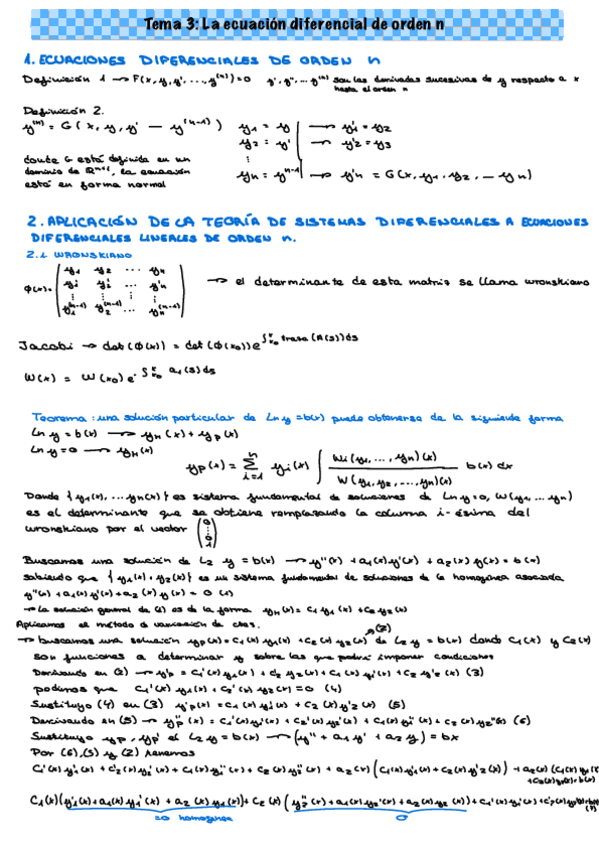 Tema 3: La ecuación diferencial de orden n
1. ECUACIONES DIFERENCIALES DE ORDEN n
Definición 1 → F(x, y, y', ..., y⁽ⁿ⁾) = 0 y', y'', ... y⁽ⁿ⁾ son las derivadas sucesivas de y respecto a x
hasta el orden n
Definición 2.
y⁽ⁿ⁾ = G(x, y, y' — y⁽ⁿ⁻¹⁾) y₁ = y → y'₁ = y₂
y₂ = y' → y'₂ = y₃
⋮
donde G está definida en un
dominio de ℝⁿ⁺¹, la ecuación
está en forma normal
yₙ = yⁿ⁻¹ → y'ₙ = G(x, y₁, y₂, ... yₙ)
2. APLICACIÓN DE LA TEORÍA DE SISTEMAS DIFERENCIALES A ECUACIONES
DIFERENCIALES LINEALES DE ORDEN n.
2.1 WRONSKIANO
y₁ y₂ ... yₙ
ϕ(x) = y'₁ y'₂ ... y'ₙ → el determinante de esta matriz se llama wronskiano
⋮ ⋮ ⋮
y₁⁽ⁿ⁻¹⁾ y₂⁽ⁿ⁻¹⁾ ... yₙ⁽ⁿ⁻¹⁾
Jacobi → det(ϕ(x)) = det(ϕ(x₀)) e^∫ₓ₀ˣ traza(A(s))ds
W(x) = W(x₀) e^-∫ₓ₀ˣ a₁(s)ds
Teorema: una solución particular de Ln y = b(x) puede obtenerse de la siguiente forma
Ln y = b(x) → y_H(x) + y_p(x)
Ln y = 0 → y_H(x)
y_p(x) = Σᵢ₌₁ⁿ yᵢ(x) ∫ Wᵢ(y₁, ..., yₙ)(x) / W(y₁, y₂, ..., yₙ)(x) b(x) dx
Donde {y₁(x), ... yₙ(x)} es sistema fundamental de soluciones de Ln y = 0, Wᵢ(y₁ ... yₙ)
es el determinante que se obtiene remplazando la columna i-ésima del
wronskiano por el vector (0 0 ⋮ 1)
Buscamos una solución de L₂ y = b(x) → y''(x) + a₁(x)y'(x) + a₂(x)y(x) = b(x)
sabiendo que {y₁(x), y₂(x)} es un sistema fundamental de soluciones de la homogénea asociada
y''(x) + a₁(x)y'(x) + a₂(x)y(x) = 0 (1)
→ La solución general de (1) es de la forma y_H(x) = C₁y₁(x) + C₂y₂(x)
Aplicamos el método de variación de ctes.
(2)
→ buscamos una solución y_p(x) = C₁(x)y₁(x) + C₂(x)y₂(x) de L₂ y = b(x) donde C₁(x) y C₂(x)
son funciones a determinar y sobre las que podré imponer condiciones
Derivando en (2) → y'_p = C₁'(x)y₁(x) + C'₂ y₂(x) + C₁(x)y₁'(x) + C₂ y'₂(x) (3)
podemos que C₁'(x)y₁(x) + C₂'(x)y₂(x) = 0 (4)
Sustituyo (4) en (3) y'_p(x) = C₁(x)y₁'(x) + C₂(x)y'₂(x) (5)
Derivando en (5) → y''_p(x) = C₁'(x)y₁'(x) + C₂'(x)y₂'(x) + C₁(x)y₁''(x) + C₂(x)y₂''(x) (6)
Sustituyo y_p, y_p' el L₂ y = b(x) → (y'' + a₁y' + a₂y) = bx
Por (6), (5) y (2) tenemos
C₁'(x)y₁'(x) + C'₂(x)y₂'(x) + C₁(x)y₁''(x) + C₂(x)y₂''(x) + a₁(x)(C₁(x)y₁'(x) + C₂(x)y'₂(x)) + a₂(x)(C₁(x)y₁(x)
+ C₂(x)y₂(x)) = b(x)
C₁(x)(y₁''(x) + a₁(x)y₁'(x) + a₂(x)y₁(x)) + C₂(x)(y₂''(x) + a₁(x)y₂'(x) + a₂(x)y₂(x)) + C₁'(x)y₁'(x) + C₂'(x)y₂'(x) = b(x)
(7)
=0 homogénea 0